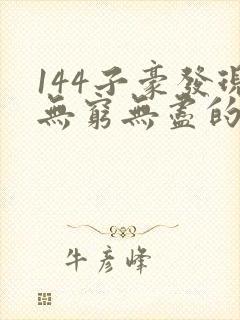 144子豪發現
無窮無盡的
牛彥峰